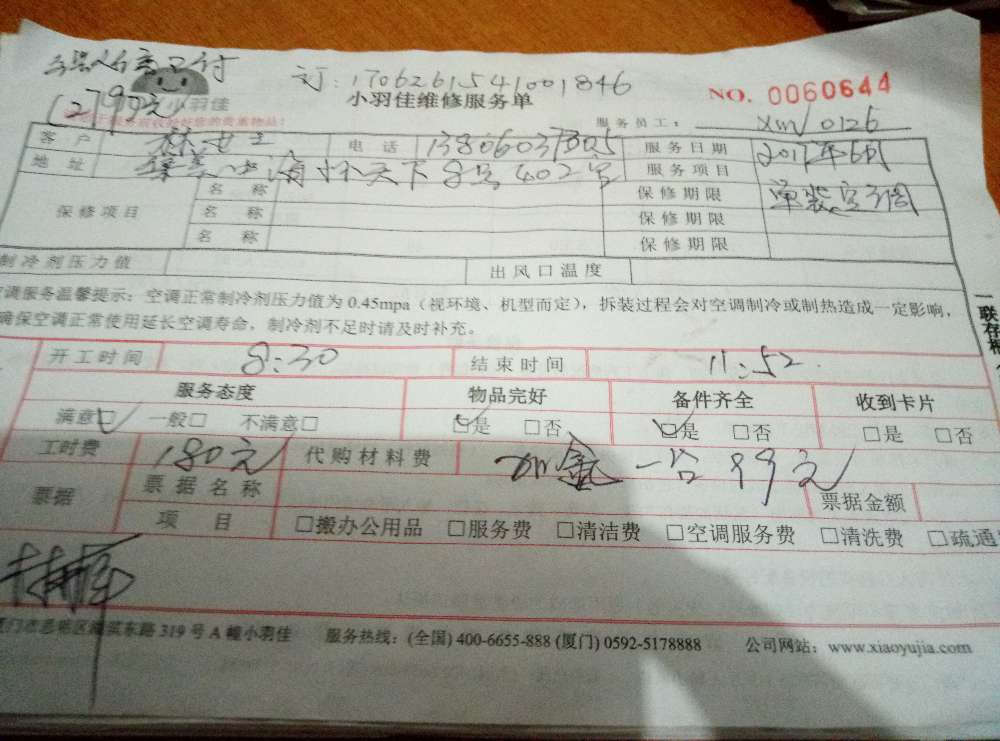 订:1706261541001846
小羽佳
小羽佳维修服务单
NO. 0060644
服务员工: xm/0126
客户 林女士 电话 服务日期 2017年6月
地址 海怀天下8号402室 服务项目
保修项目 名称 保修期限 单装空调
名称 保修期限
名称 保修期限
制冷剂压力值 出风口温度
空调服务温馨提示:空调正常制冷剂压力值为0.45mpa(视环境、机型而定),拆装过程会对空调制冷或制热造成一定影响,
确保空调正常使用延长空调寿命,制冷剂不足时请及时补充。
一联存根
开工时间 8:30 结束时间 11:52
服务态度 物品完好 备件齐全 收到卡片
满意□ 一般□ 不满意□ □是 □否 □是 □否 □是 □否
工时费 180元 代购材料费 加氟一台99元
票据 票据名称 票据金额
项目 □搬办公用品 □服务费 □清洁费 □空调服务费 □清洗费 □疏通
东路319号A幢小羽佳 服务热线:(全国) 400-6655-888 (厦门) 0592-5178888 公司网站:www.xiaoyujia.com